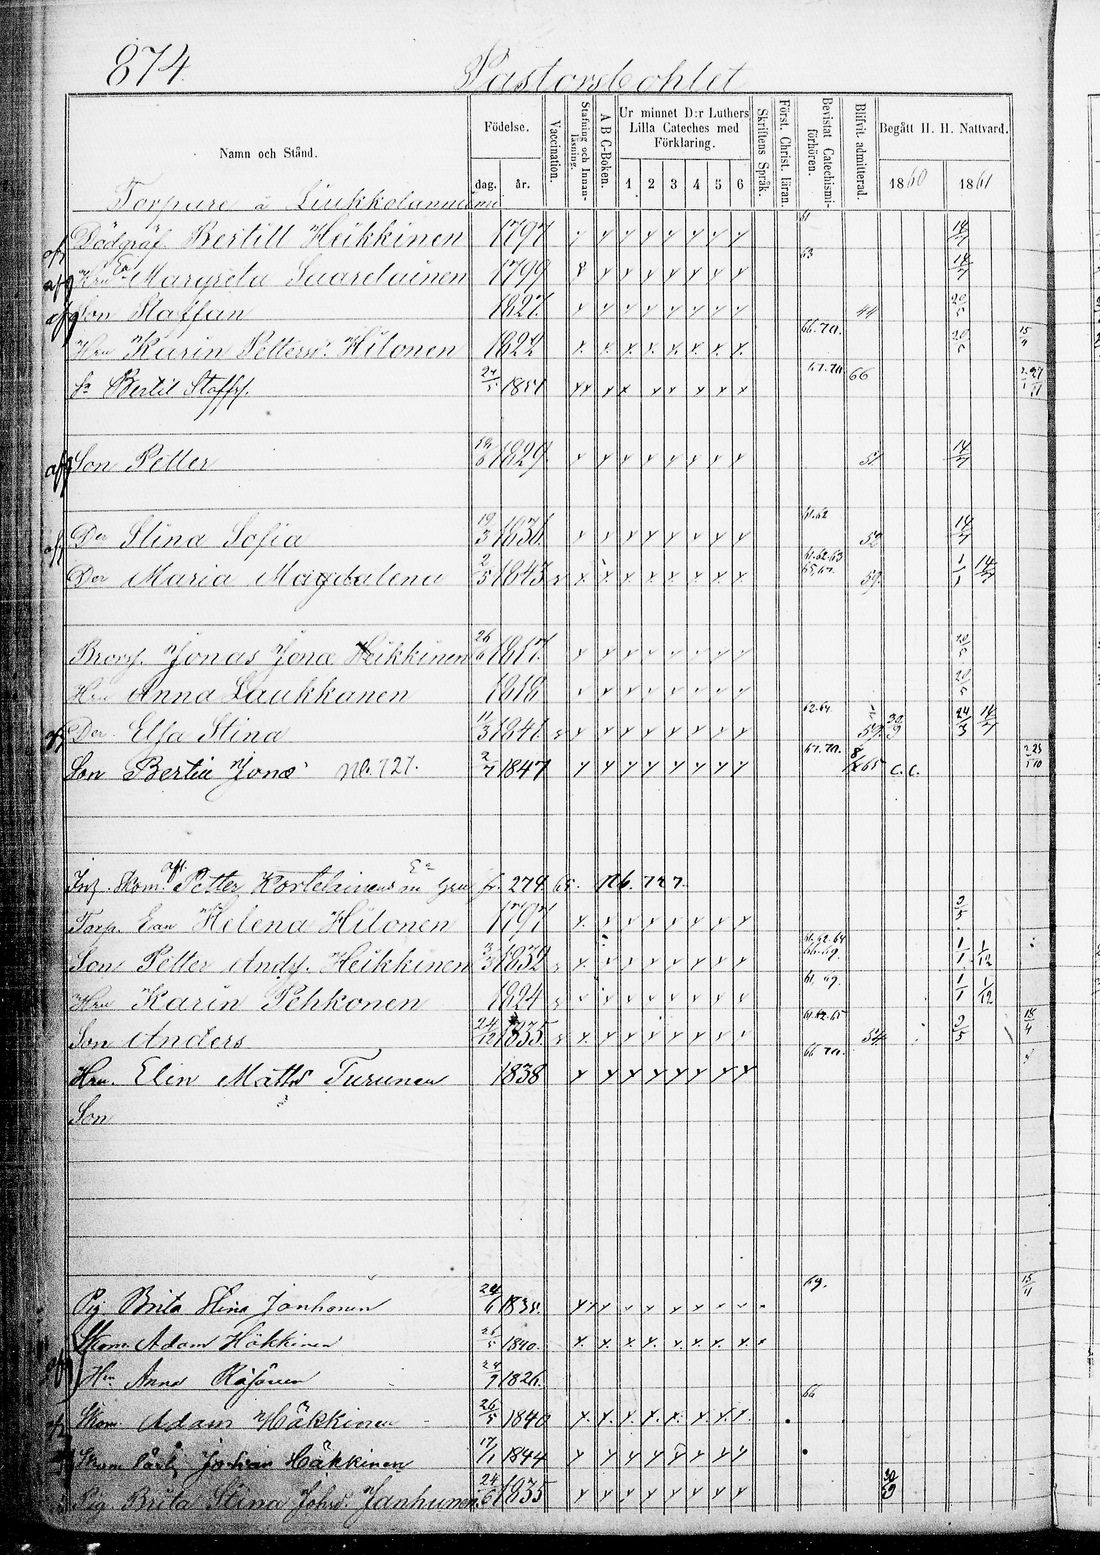 874
Pastorsbohlet
Namn och Stånd.
Födelse.
dag. år.
Vaccination.
Stafning och Innanläsning.
A B C-Boken.
Ur minnet D:r Luthers Lilla Cateches med Förklaring.
1 2 3 4 5 6
Skriftens Språk.
Först. Christ. läran.
Bevistat Catechismiförhören.
Blifvit admitterad.
Begått H. H. Nattvard.
1860 1861
Torpare å
Dödgräf Bertill Heikkinen 1797 61 18/7
Margreta Saarelainen 1799 63 18/7
Son Staffan 1827 44 20/5
Hru Karin Petters: Hilonen 1822 66.70. 20/5
Sn Bertil Staffs. 24/5 1851 67.70 66
Son Petter 1829 51 14/7
Der Stina Sofia 19/3 1836 61.62 52 14/7
Der Maria Magdalena 2/5 1843 61.62.63 59 1/1 14/7
Jonas Jonæ Heikkinen 26/6 1817 20/5
Hru Anna Laukkanen 1818 20/5
Der Elsa Stina 11/3 1841 62.64 59 30/9 24/3 14/7
Son Bertil Jonæ No. 727. 2/7 1847 67.70. 65 C.C.
Inh. Skom. Petter Kortelainens Enka fr. 274 65. 126. 727.
Torp. Enk Helena Hilonen 1797 2/5
Son Petter Andſ. Heikkinen 1832 61.62.64 1/1 1/12
Hru Karin Pehkonen 1824 61. 69. 1/1 1/12
Son Anders 24/12 1835 61.62.65 54 2/5 18/4
Hru. Elin Matts Turunen 1838 66 70.
Son
Pig Brita Stina Janhonen 24/6 1835. 69. 15/4
Skom. Adam Häkkinen 26/5 1840.
Hru Anna Räsänen 24/9 1826.
Skom. Adam Häkkinen 26/5 1840 66
Häkkinen 17/1 1844
Pig Brita Stina Johsd. Janhunen 24/6 1835 30/9